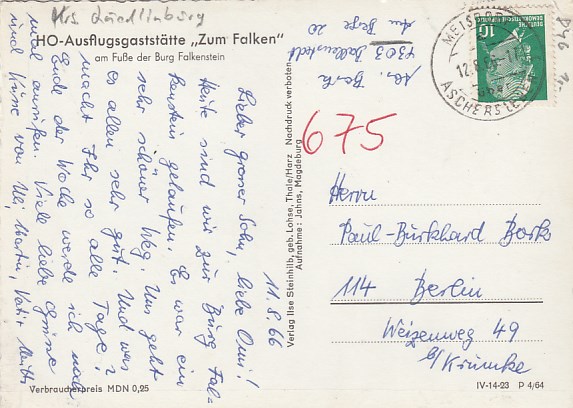 Krs. Quedlinburg
HO-Ausflugsgaststätte „Zum Falken"
am Fuße der Burg Falkenstein
11.8.66
Lieber grosser Sohn, liebe Omi!
Heute sind wir zur Burg Fal-
kenstein gelaufen. Es war ein
sehr schöner Weg. Uns geht
es allen sehr gut. Und was
macht Ihr so alle Tage?
Ende der Woche werde ich noch
mal anrufen. Viele liebe Grüsse
und Küsse von Uli, Martin, Vati + Mutti
Verbraucherpreis MDN 0,25
Verlag Ilse Steinhilb, geb. Lohse, Thale/Harz Nachdruck verboten
Aufnahme: Jahns, Magdeburg
Abs. Bork
4303 Ballenstedt
Berge 20
DEUTSCHE DEMOKRATISCHE REPUBLIK
10
MEISDORF
12.8.66
ASCHERSLEBEN
675
Herrn
Paul-Burkhard Bork
114 Berlin
Weizenweg 49
b/ Krumke
IV-14-23 P 4/64